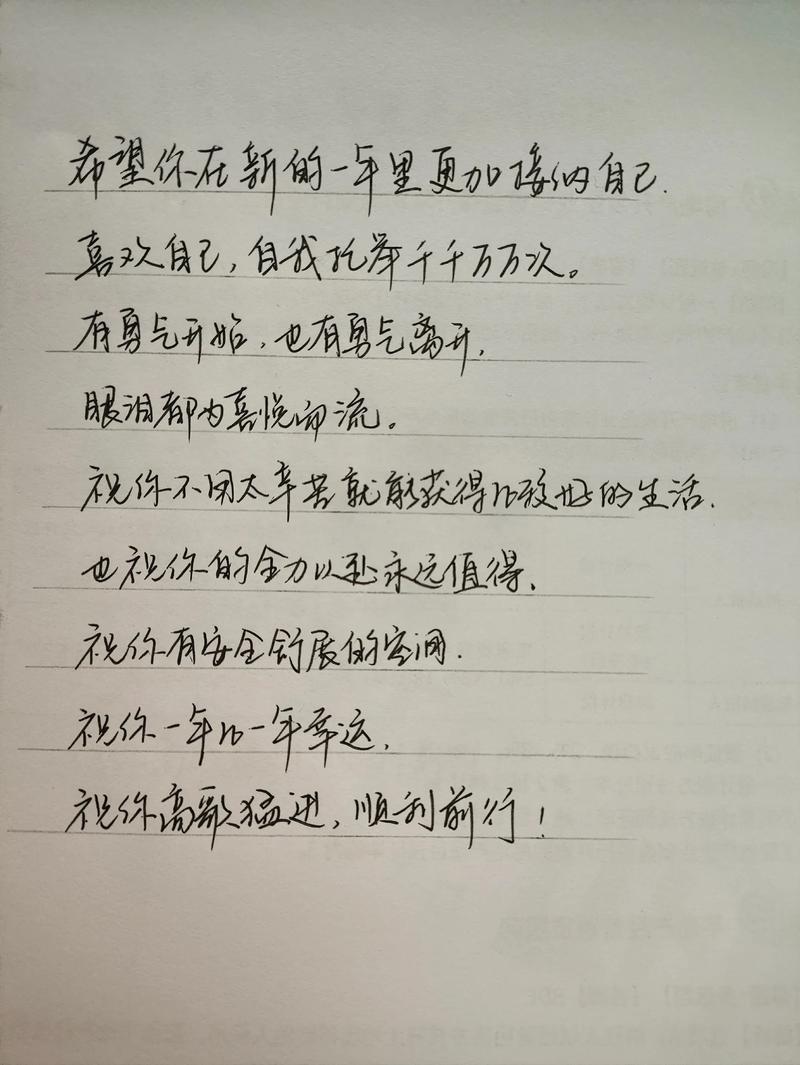 希望你在新的一年里更加接纳自己.
喜欢自己,自我托举千千万万次。
有勇气开始,也有勇气离开,
眼泪都为喜悦而流。
祝你不用太辛苦就能获得比较好的生活.
也祝你的全力以赴永远值得、
祝你有安全舒展的空间.
祝你一年比一年幸运,
祝你高歌猛进,顺利前行!